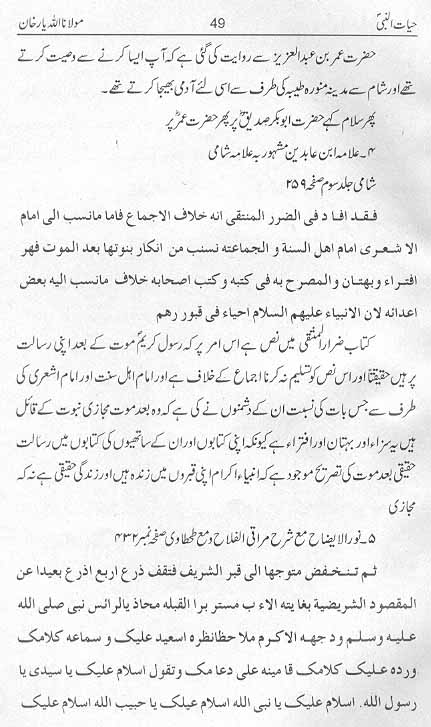 حیات النبیؐ 49 مولانا اللہ یار خان
حضرت عمر بن عبدالعزیز سے روایت کی گئی ہے کہ آپ ایسا کرنے سے وصیت کرتے
تھے اور شام سے مدینہ منورہ طیبہ کی طرف سے اسی لئے آدمی بھیجا کرتے تھے۔
پھر سلام کہے حضرت ابوبکر صدیقؓ پر پھر حضرت عمرؓ پر
۴۔ علامہ ابن عابدین مشہور بہ علامہ شامی
شامی جلد سوم صفحہ ۲۵۹
فقد افاد فی الضرر المنتقی انه خلاف الاجماع فاما مانسب الی امام
الا شعری امام اهل السنة و الجماعته نسنب من انکار بنوتها بعد الموت فهر
افتراء وبهتان و المصرح به فی کتبه و کتب اصحابه خلاف مانسب الیه بعض
اعدائه لان الانبیاء علیهم السلام احیاء فی قبور رهم
کتاب ضرار المنتقی میں نص ہے اس امر پر کہ رسول کریمؐ موت کے بعد اپنی رسالت
پر ہیں حقیقتا اور اس نص کو تسلیم نہ کرنا اجماع کے خلاف ہے اور امام اہل سنت اور امام اشعری کی
طرف سے جس بات کی نسبت ان کے دشمنوں نے کی ہے کہ وہ بعد موت مجازی نبوت کے قائل
ہیں یہ سزاء اور بہتان اور افتراء ہے کیونکہ اپنی کتابوں اور ان کے ساتھیوں کی کتابوں میں رسالت
حقیقی بعد موت کی تصریح موجود ہے کہ انبیاء اکرام اپنی قبروں میں زندہ ہیں اور زندگی حقیقی ہے نہ کہ
مجازی
۵۔ نور الایضاح مع شرح مراقی الفلاح ومع طحطاوی صفحہ نمبر ۴۳۲
ثم تنخفض متوجها الی قبر الشریف فتقف ذرع اربع اذرع بعیدا عن
المقصود الشریضیة بغایته الاء ب مستر برا القبله محاذ یالرائس نبی صلی الله
علیه وسلم ود جهه الاکرم ملا حظانظره اسعید علیک و سماعه کلامک
ورده علیک کلامک قا مینه علی دعا مک وتقول اسلام علیک یا سیدی یا
رسول الله. اسلام علیک یا نبی الله اسلام عیلک یا حبیب الله اسلام علیک